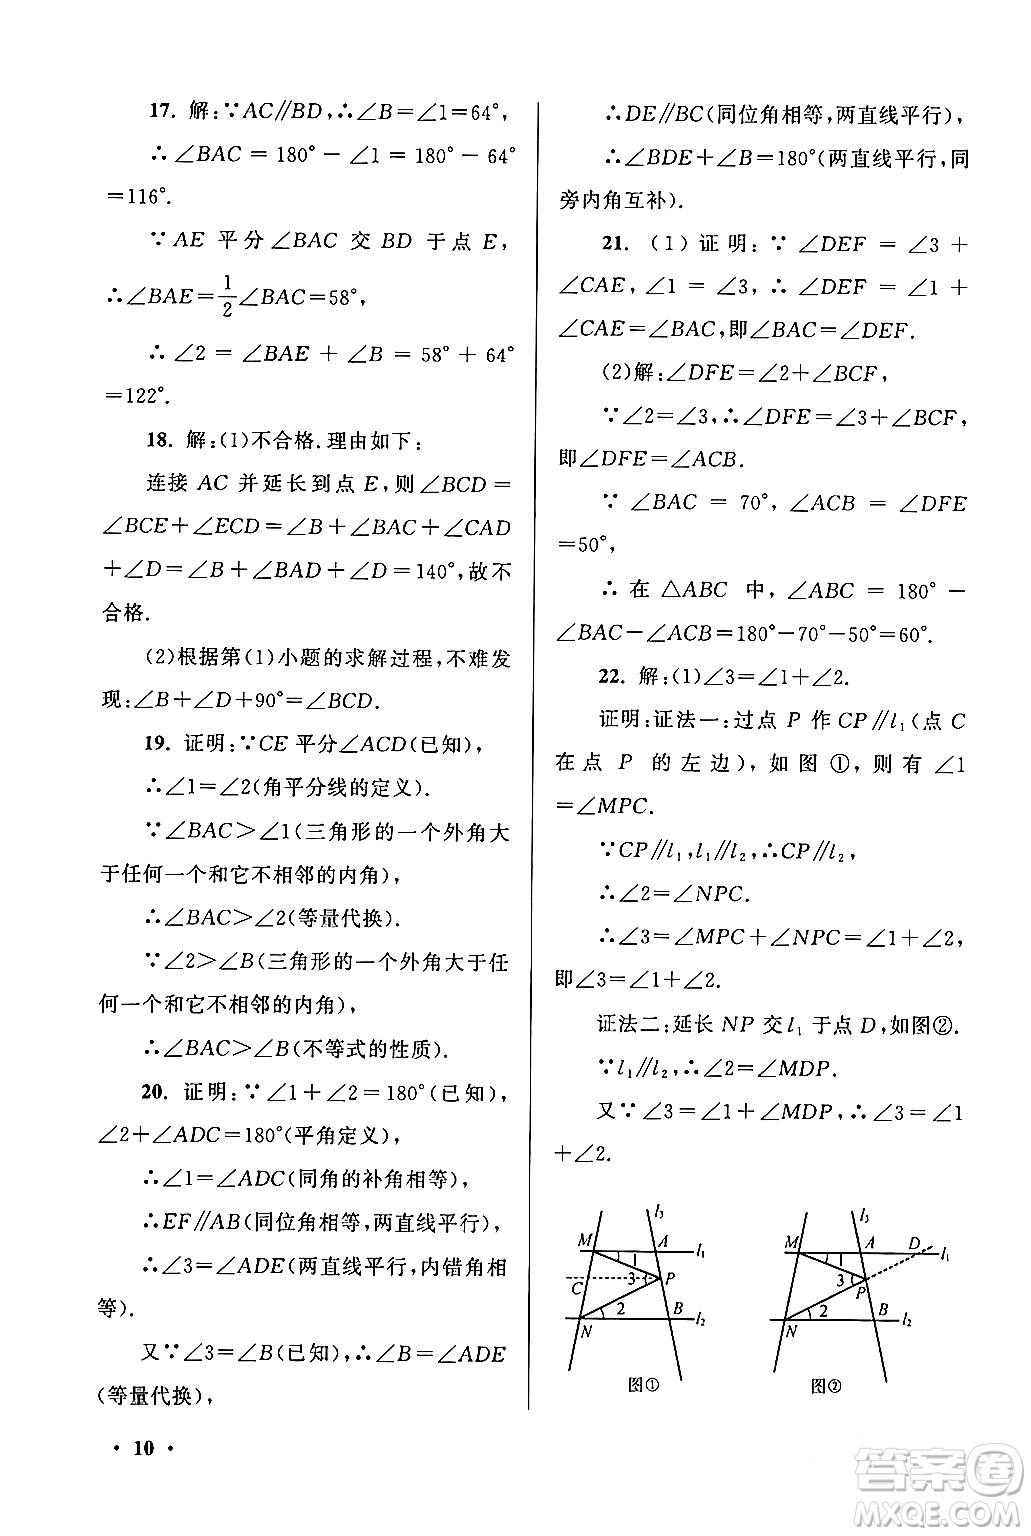 17. 解:∵AC∥BD,∴∠B=∠1=64°,
∴∠BAC=180°-∠1=180°-64°
=116°.
∵AE 平分∠BAC 交 BD 于点 E,
∴∠BAE=1/2∠BAC=58°,
∴∠2=∠BAE+∠B=58°+64°
=122°.
18. 解:(1)不合格.理由如下:
连接 AC 并延长到点 E,则∠BCD=
∠BCE+∠ECD=∠B+∠BAC+∠CAD
+∠D=∠B+∠BAD+∠D=140°,故不
合格.
(2)根据第(1)小题的求解过程,不难发
现:∠B+∠D+90°=∠BCD.
19. 证明:∵CE 平分∠ACD(已知),
∴∠1=∠2(角平分线的定义).
∵∠BAC>∠1(三角形的一个外角大
于任何一个和它不相邻的内角),
∴∠BAC>∠2(等量代换).
∵∠2>∠B(三角形的一个外角大于任
何一个和它不相邻的内角),
∴∠BAC>∠B(不等式的性质).
20. 证明:∵∠1+∠2=180°(已知),
∠2+∠ADC=180°(平角定义),
∴∠1=∠ADC(同角的补角相等),
∴EF∥AB(同位角相等,两直线平行),
∴∠3=∠ADE(两直线平行,内错角相
等).
又∵∠3=∠B(已知),∴∠B=∠ADE
(等量代换),
· 10 ·
∴DE∥BC(同位角相等,两直线平行),
∴∠BDE+∠B=180°(两直线平行,同
旁内角互补).
21. (1)证明:∵∠DEF=∠3+
∠CAE,∠1=∠3,∴∠DEF=∠1+
∠CAE=∠BAC,即∠BAC=∠DEF.
(2)解:∠DFE=∠2+∠BCF,
∵∠2=∠3,∴∠DFE=∠3+∠BCF,
即∠DFE=∠ACB.
∵∠BAC=70°,∴∠ACB=∠DFE
=50°,
∴在△ABC 中,∠ABC=180°-
∠BAC-∠ACB=180°-70°-50°=60°.
22. 解:(1)∠3=∠1+∠2.
证明:证法一:过点 P 作 CP∥l₁(点 C
在点 P 的左边),如图①,则有∠1
=∠MPC.
∵CP∥l₁,l₁∥l₂,∴CP∥l₂,
∴∠2=∠NPC.
∴∠3=∠MPC+∠NPC=∠1+∠2,
即∠3=∠1+∠2.
证法二:延长 NP 交 l₁ 于点 D,如图②.
∵l₁∥l₂,∴∠2=∠MDP.
又∵∠3=∠1+∠MDP,∴∠3=∠1
+∠2.
l₃
M A l₁
1
C 3 P
2 B l₂
N
图①
l₃
M A D l₁
1
3 P
2 B l₂
N
图②
答案圈
MXQE.COM